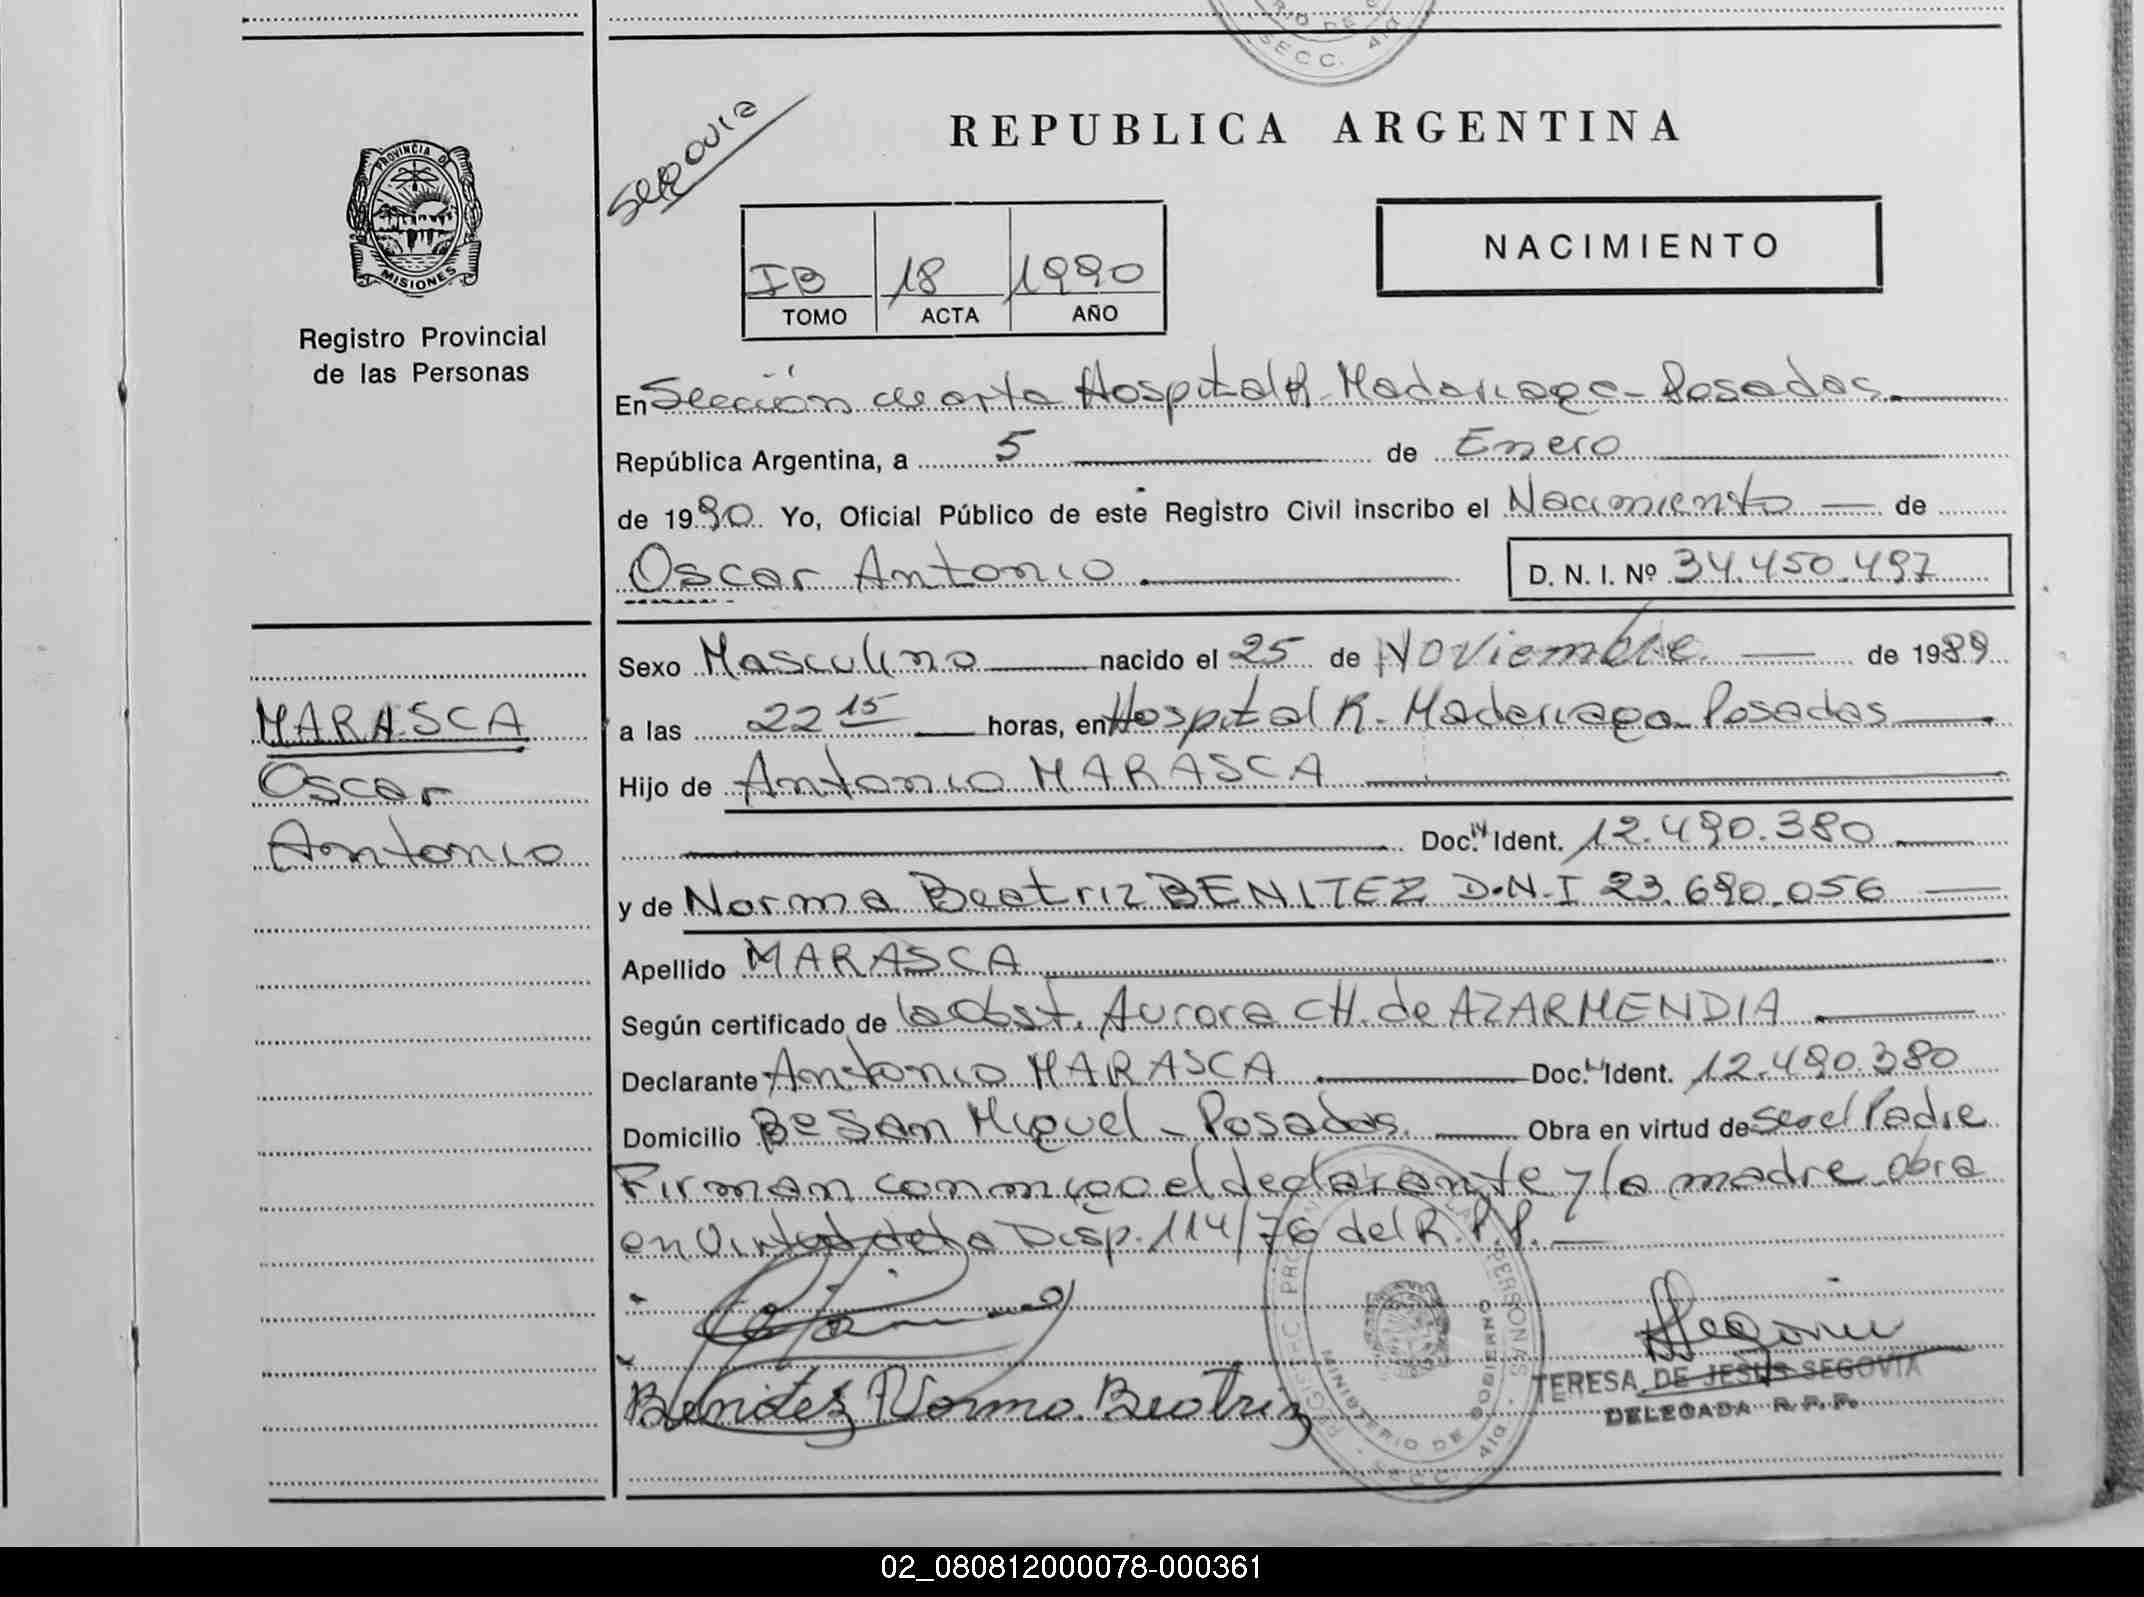 RIO DE
SECC. 4ta
SEGOVIA
REPUBLICA ARGENTINA
PROVINCIA D
MISIONES
Registro Provincial
de las Personas
IB 18 1990
TOMO ACTA AÑO
NACIMIENTO
En Sección cuarta Hospital R. Madariaga - Posadas.
República Argentina, a 5 de Enero
de 1990. Yo, Oficial Público de este Registro Civil inscribo el Nacimiento de
Oscar Antonio D. N. I. Nº 34.450.497
Sexo Masculino nacido el 25 de Noviembre de 1989
MARASCA
Oscar
Antonio
a las 22 15 horas, en Hospital R. Madariaga Posadas
Hijo de Antonio MARASCA
Doc. Ident. 12.490.380
y de Norma Beatriz BENITEZ D.N.I 23.690.056
Apellido MARASCA
Según certificado de la Obst. Aurora CH. de AZARMENDIA
Declarante Antonio MARASCA Doc. Ident. 12.490.380
Domicilio Bº San Miguel - Posadas. Obra en virtud de ser el Padre
Firman conmigo el declarante y la madre obra
en Virtud de la Disp. 114/76 del R.P.P.
Benitez Norma Beatriz
MINISTERIO DE GOBIERNO
PERSONAS
SECC. 4ta
Segovia
TERESA DE JESUS SEGOVIA
DELEGADA R.P.P.
02_080812000078-000361